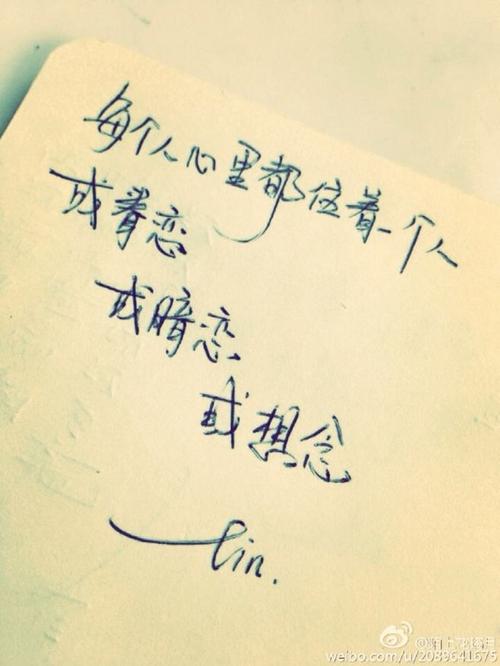 每个人心里都住着一个人
或眷恋
或暗恋
或想念
——lin.
@陌上花撩月
weibo.com/u/2089641675